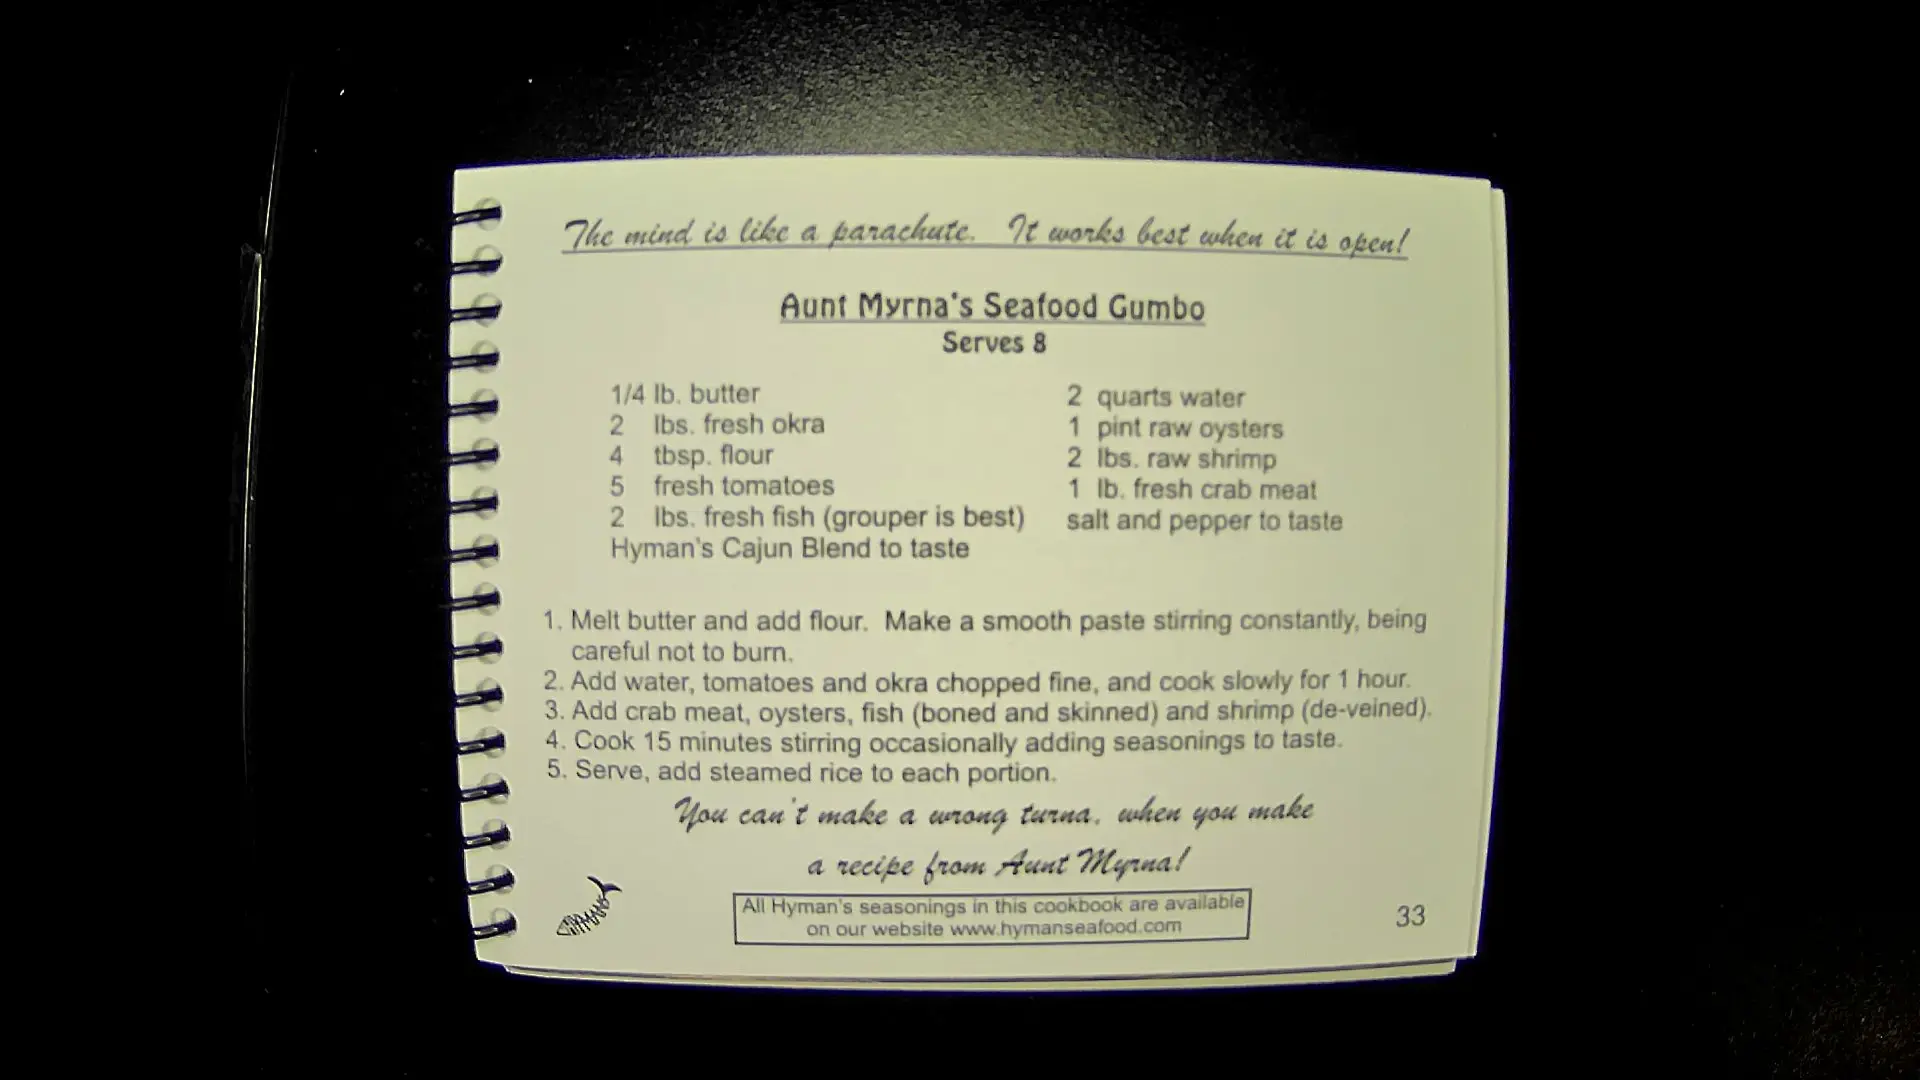 The mind is like a parachute. It works best when it is open!
Aunt Myrna's Seafood Gumbo
Serves 8
1/4 lb. butter
2 lbs. fresh okra
4 tbsp. flour
5 fresh tomatoes
2 lbs. fresh fish (grouper is best)
Hyman's Cajun Blend to taste
2 quarts water
1 pint raw oysters
2 lbs. raw shrimp
1 lb. fresh crab meat
salt and pepper to taste
1. Melt butter and add flour. Make a smooth paste stirring constantly, being
careful not to burn.
2. Add water, tomatoes and okra chopped fine, and cook slowly for 1 hour.
3. Add crab meat, oysters, fish (boned and skinned) and shrimp (de-veined).
4. Cook 15 minutes stirring occasionally adding seasonings to taste.
5. Serve, add steamed rice to each portion.
You can't make a wrong turna, when you make
a recipe from Aunt Myrna!
All Hyman's seasonings in this cookbook are available
on our website www.hymanseafood.com
33